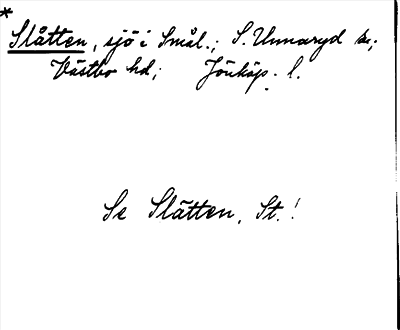 *
Slåtten, sjö i Smål.; S. Unnaryd sn;
Västbo hd; Jönköp. l.
Se Slätten, St.!